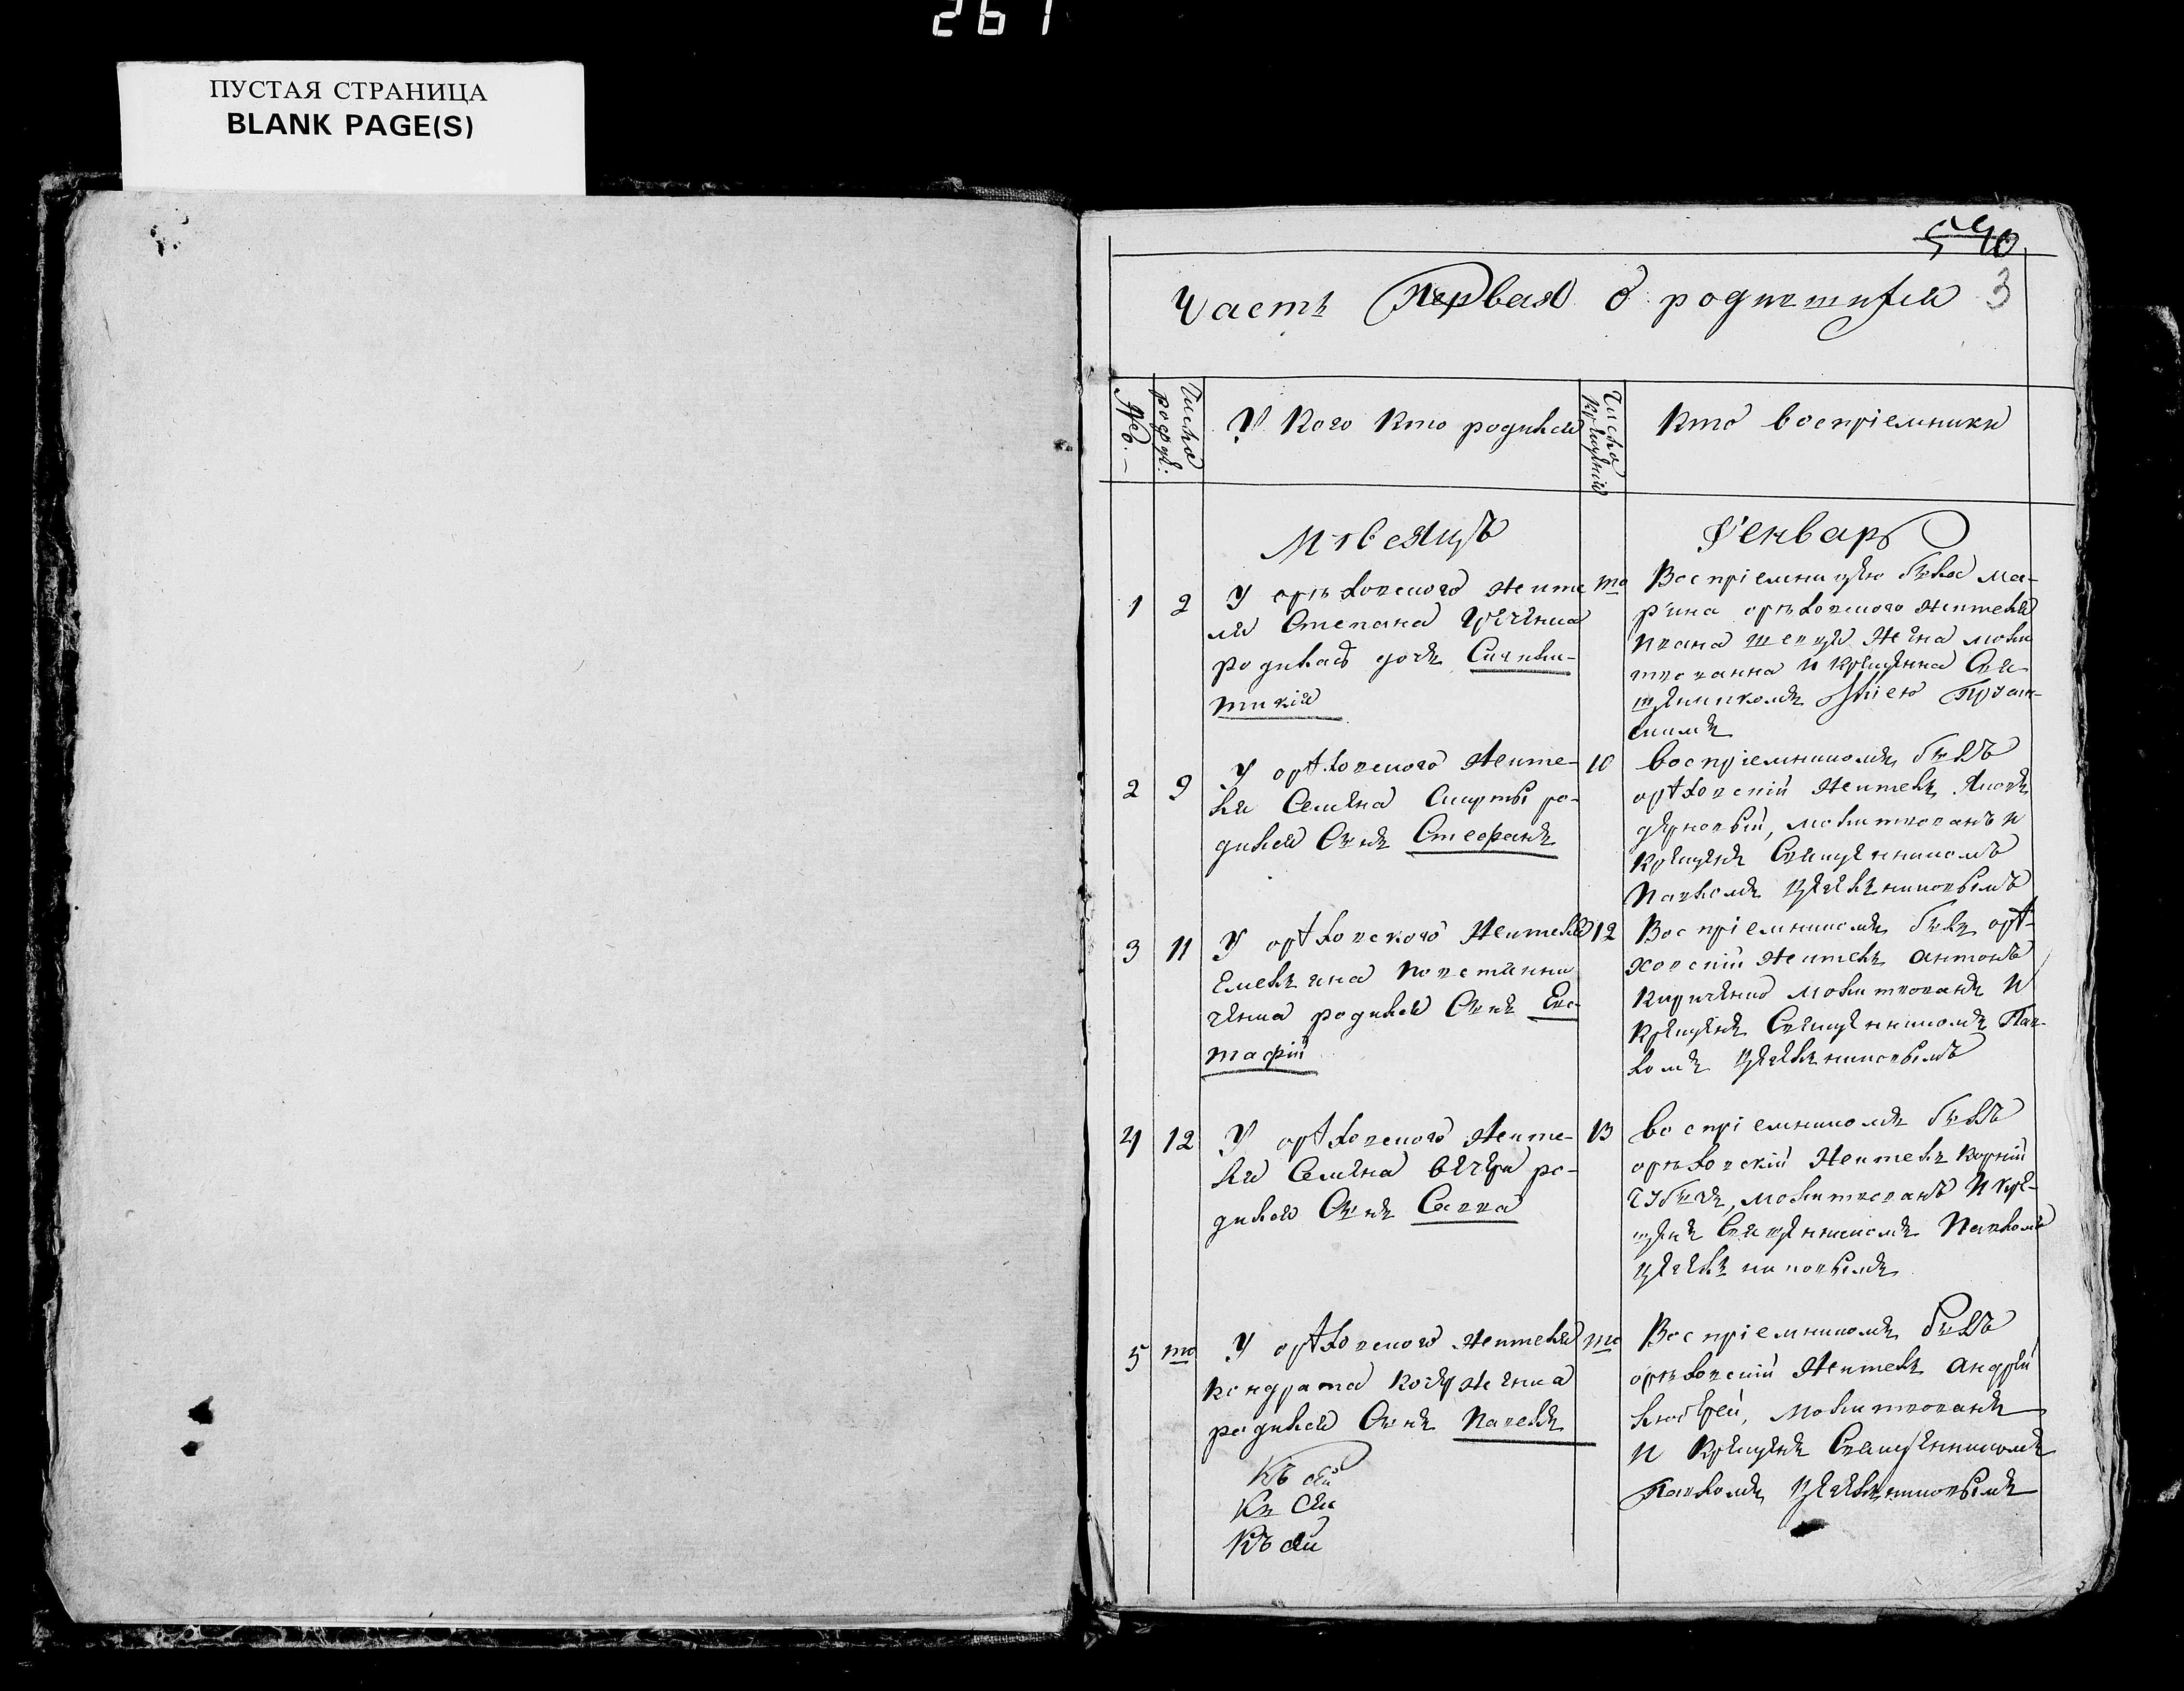 261
ПУСТАЯ СТРАНИЦА
BLANK PAGE(S)
540
3
Часть Первая о родившихся
№о.
Числа рожд:
У кого кто родился
Числа крещенія
Кто воспріемники
Мѣсяцъ
Генварь
1 2
У орѣховского жите
ля Степана
родилась дочь Сигкли-
тикія
то
Воспріемницею была Ма-
рина орѣховского жителя
Ивана жена моли
твованна и крещенна Свя-
щенникомъ
2 9
У орѣховского жите-
ля Семена ро-
дился Сынъ Стефанъ
10
Воспріемникомъ былъ
орѣховскій житель Яковъ
молитвованъ и
крещенъ Священникомъ
Павломъ
3 11
У орѣховского жителя
Емельяна
родился Сынъ Евс-
тафій
12
Воспріемникомъ былъ орѣ-
ховскій житель Антонъ
Кириченко молитвованъ и
крещенъ Священникомъ Пав-
ломъ
4 12
У орѣховского жите-
ля Семена Вечери ро-
дился Сынъ Савва
13
Воспріемникомъ былъ
орѣховскій житель Корній
молитвованъ и кре-
щенъ Священникомъ Павломъ
5 то
У орѣховского жителя
Кондрата
родился Сынъ Павелъ
то
Воспріемникомъ былъ
орѣховскій житель Андрей
молитвованъ
и крещенъ Священникомъ
Павломъ
Къ сей
Къ сей
Къ сей